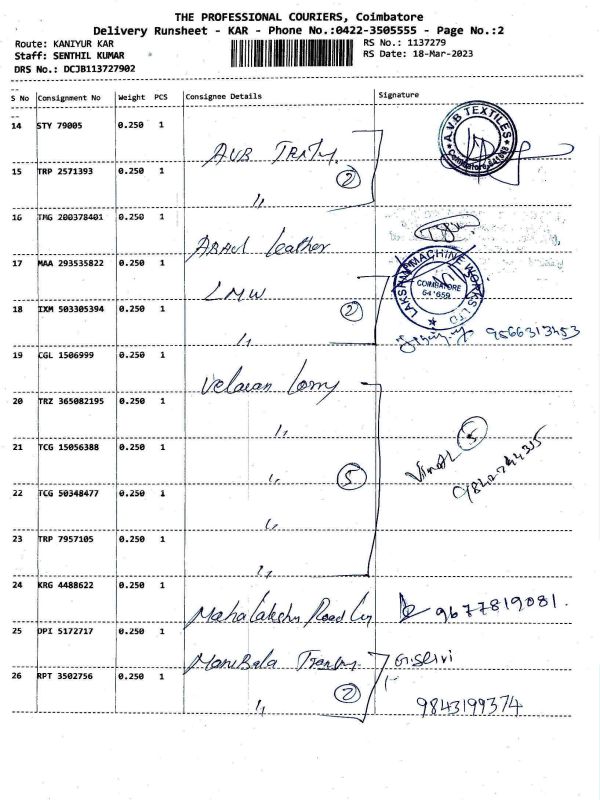 THE PROFESSIONAL COURIERS, Coimbatore
Delivery Runsheet - KAR - Phone No.:0422-3505555 - Page No.:2
Route: KANIYUR KAR
RS No.: 1137279
Staff: SENTHIL KUMAR
RS Date: 18-Mar-2023
DRS No.: DCJB113727902
S No Consignment No Weight PCS Consignee Details Signature
14 STY 79005 0.250 1
A.V.B TEXTILES
Coimbatore
AVB
15 TRP 2571393 0.250 1
2
〃
16 TMG 200378401 0.250 1
Leather
17 MAA 293535822 0.250 1
LAKSHMI MACHINE WORKS LTD
COIMBATORE
641 659
LMW
18 IXM 503305394 0.250 1
2
〃 9566313453
19 CGL 1506999 0.250 1
Velavan Lorry
20 TRZ 365082195 0.250 1
〃
21 TCG 15056388 0.250 1
5
〃 5
22 TCG 50348477 0.250 1
〃
23 TRP 7957105 0.250 1
〃
24 KRG 4488622 0.250 1
Mahalakshmi Road 9677819081.
25 DPI 5172717 0.250 1
ManiBala G.Selvi
26 RPT 3502756 0.250 1
2
〃 9843199374